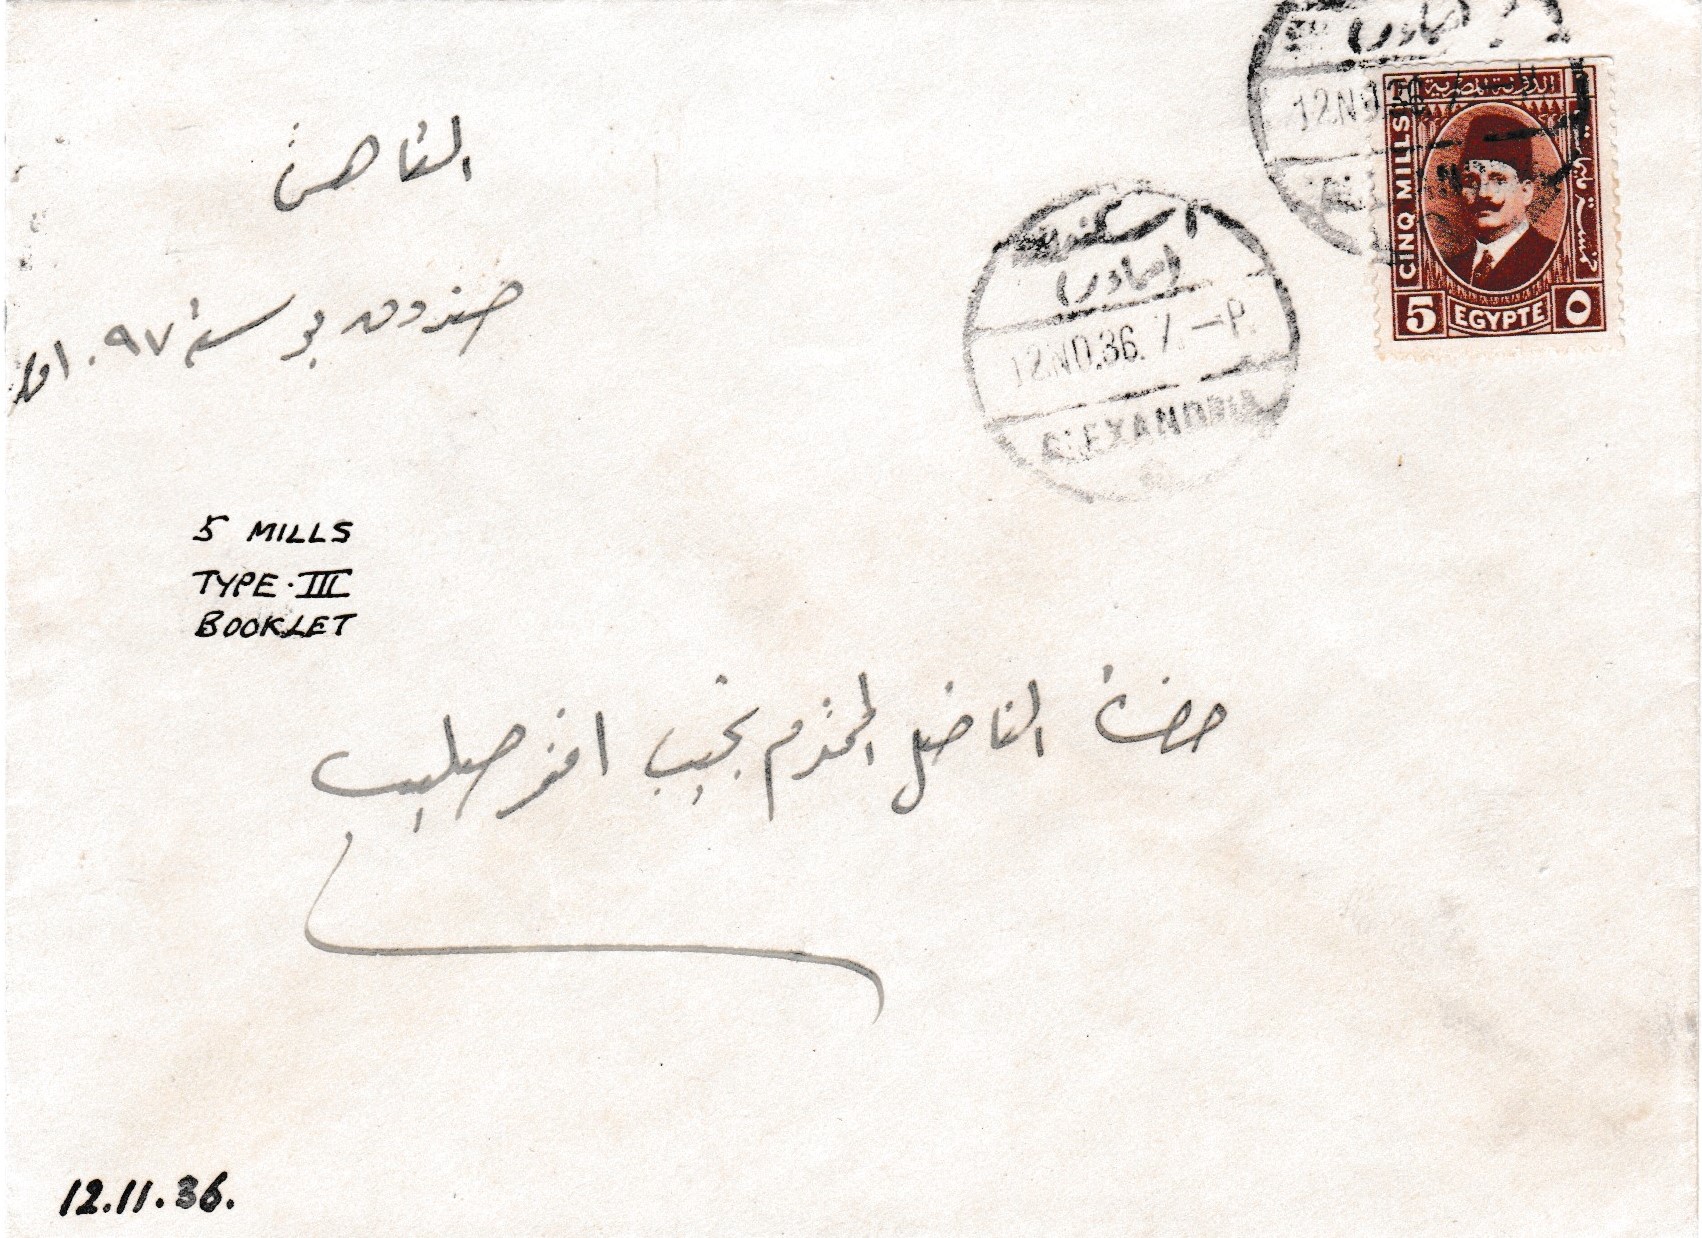 القاهرة
صندوق بوستة ٩٧٠
الدولة المصرية
CINQ MILLS
خمسة مليمات
5 EGYPTE ٥
12 NO 36
اسكندرية
(صادر)
12 NO.36. 7.-P.
ALEXANDRIA
5 MILLS
TYPE. III
BOOKLET
حضرة الفاضل المحترم نجيب افندي صليب
12.11.36.